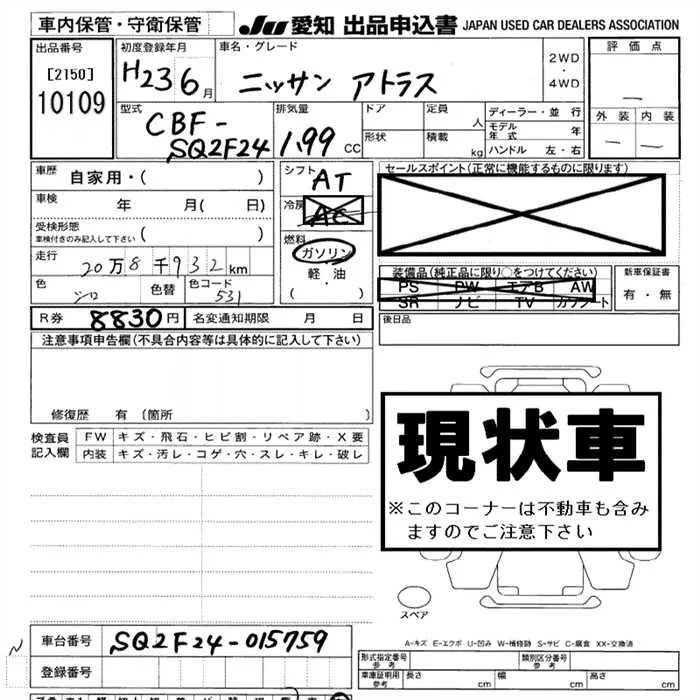 車内保管・守衛保管
JU 愛知 出品申込書 JAPAN USED CAR DEALERS ASSOCIATION
出品番号
[2150]
10109
初度登録年月
H23 6月
車名・グレード
ニッサン アトラス
2WD
・
4WD
評価点
—
外装 内装
— —
型式
CBF-
SQ2F24
排気量
1.99 CC
ドア
定員
人
形状
積載
kg
ディーラー・並行
モデル年式 年
ハンドル 左・右
車歴
自家用・( )
車検
年 月( 日)
受検形態
車検付きのみ記入して下さい
( )
走行
20万8千932km
色
シロ
色替
色コード
531
シフト
AT
冷房
AC
燃料
ガソリン
軽・油
( ・ )
セールスポイント(正常に機能するものに限ります)
装備品(純正品に限り○をつけてください)
PS PW エアB AW
SR ナビ TV カワシート
新車保証書
有・無
R券 8830円 名変通知期限 月 日
後日品
注意事項申告欄(不具合内容等は具体的に記入して下さい)
修復歴 有(箇所 )
検査員
記入欄
FW キズ・飛石・ヒビ割・リペア跡・X要
内装 キズ・汚レ・コゲ・穴・スレ・キレ・破レ
現状車
※このコーナーは不動車も含み
ますのでご注意下さい
スペア
N
車台番号 SQ2F24-015759
登録番号
A-キズ E-エクボ U-凹み W-補修跡 S-サビ C-腐食 XX-交換済
形式指定番号
参考
類別区分番号
参考
車庫証明用
参考
長さ cm 幅 cm 高さ cm